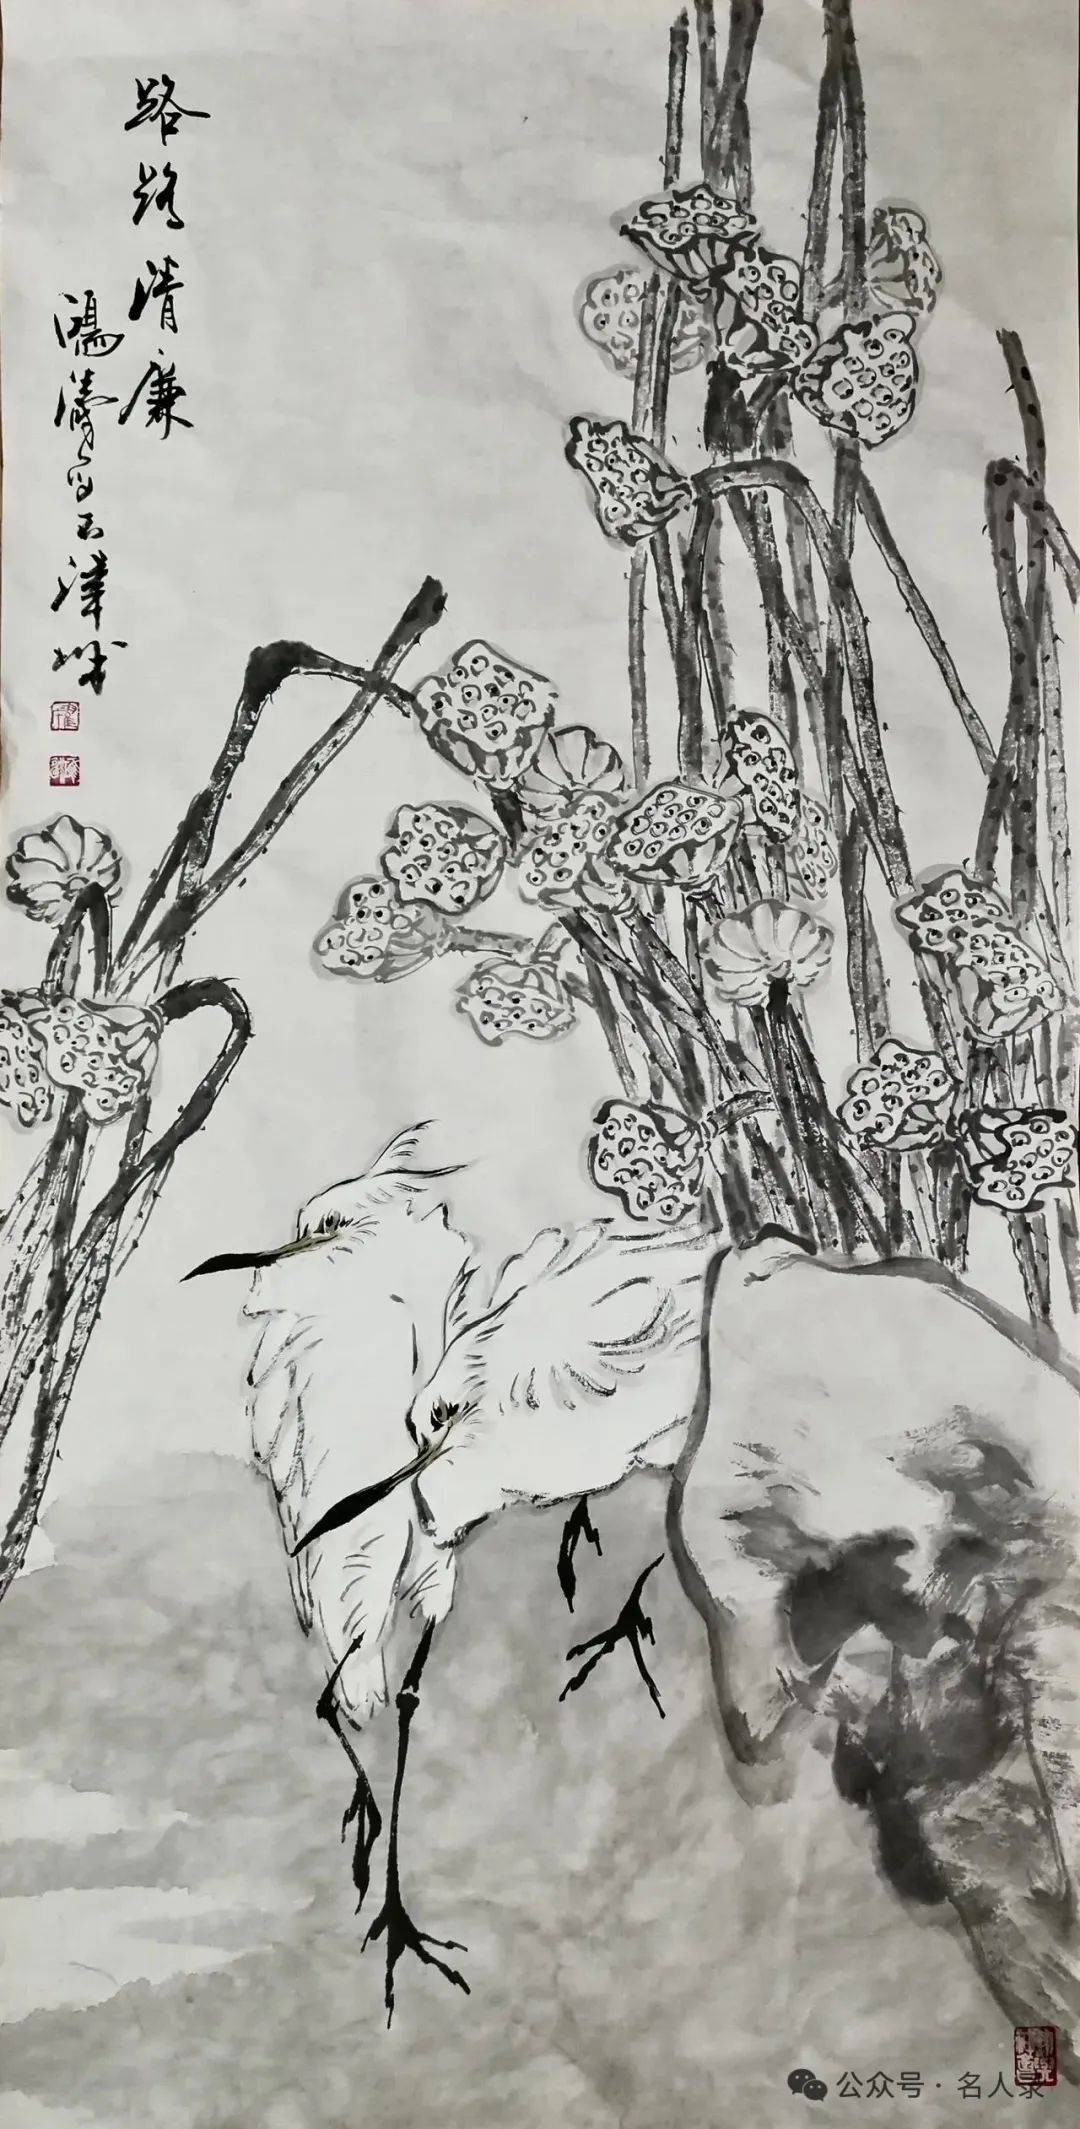 路路清廉
鴻濤写于津城
公众号·名人录